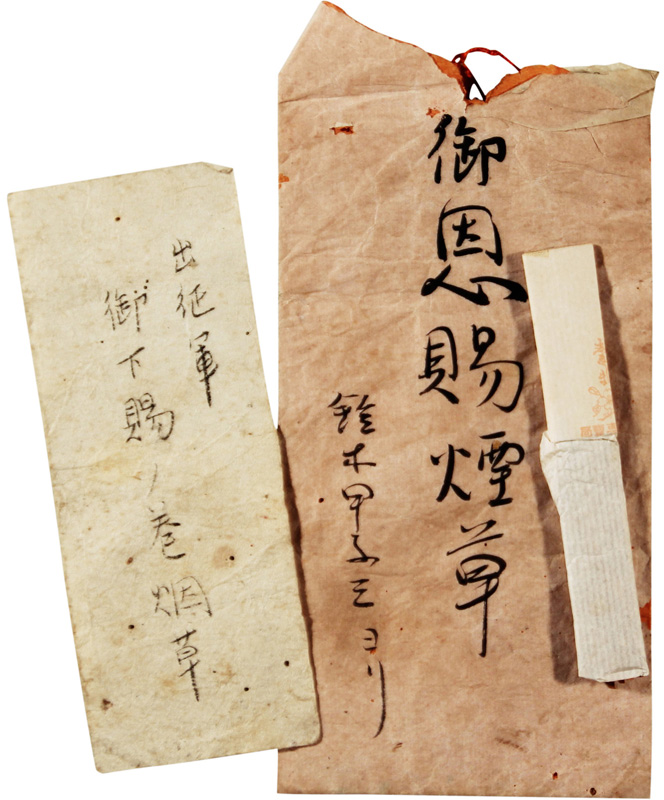 御恩賜煙草
鈴木甲子三ヨリ
出征軍
御下賜ノ巻烟草